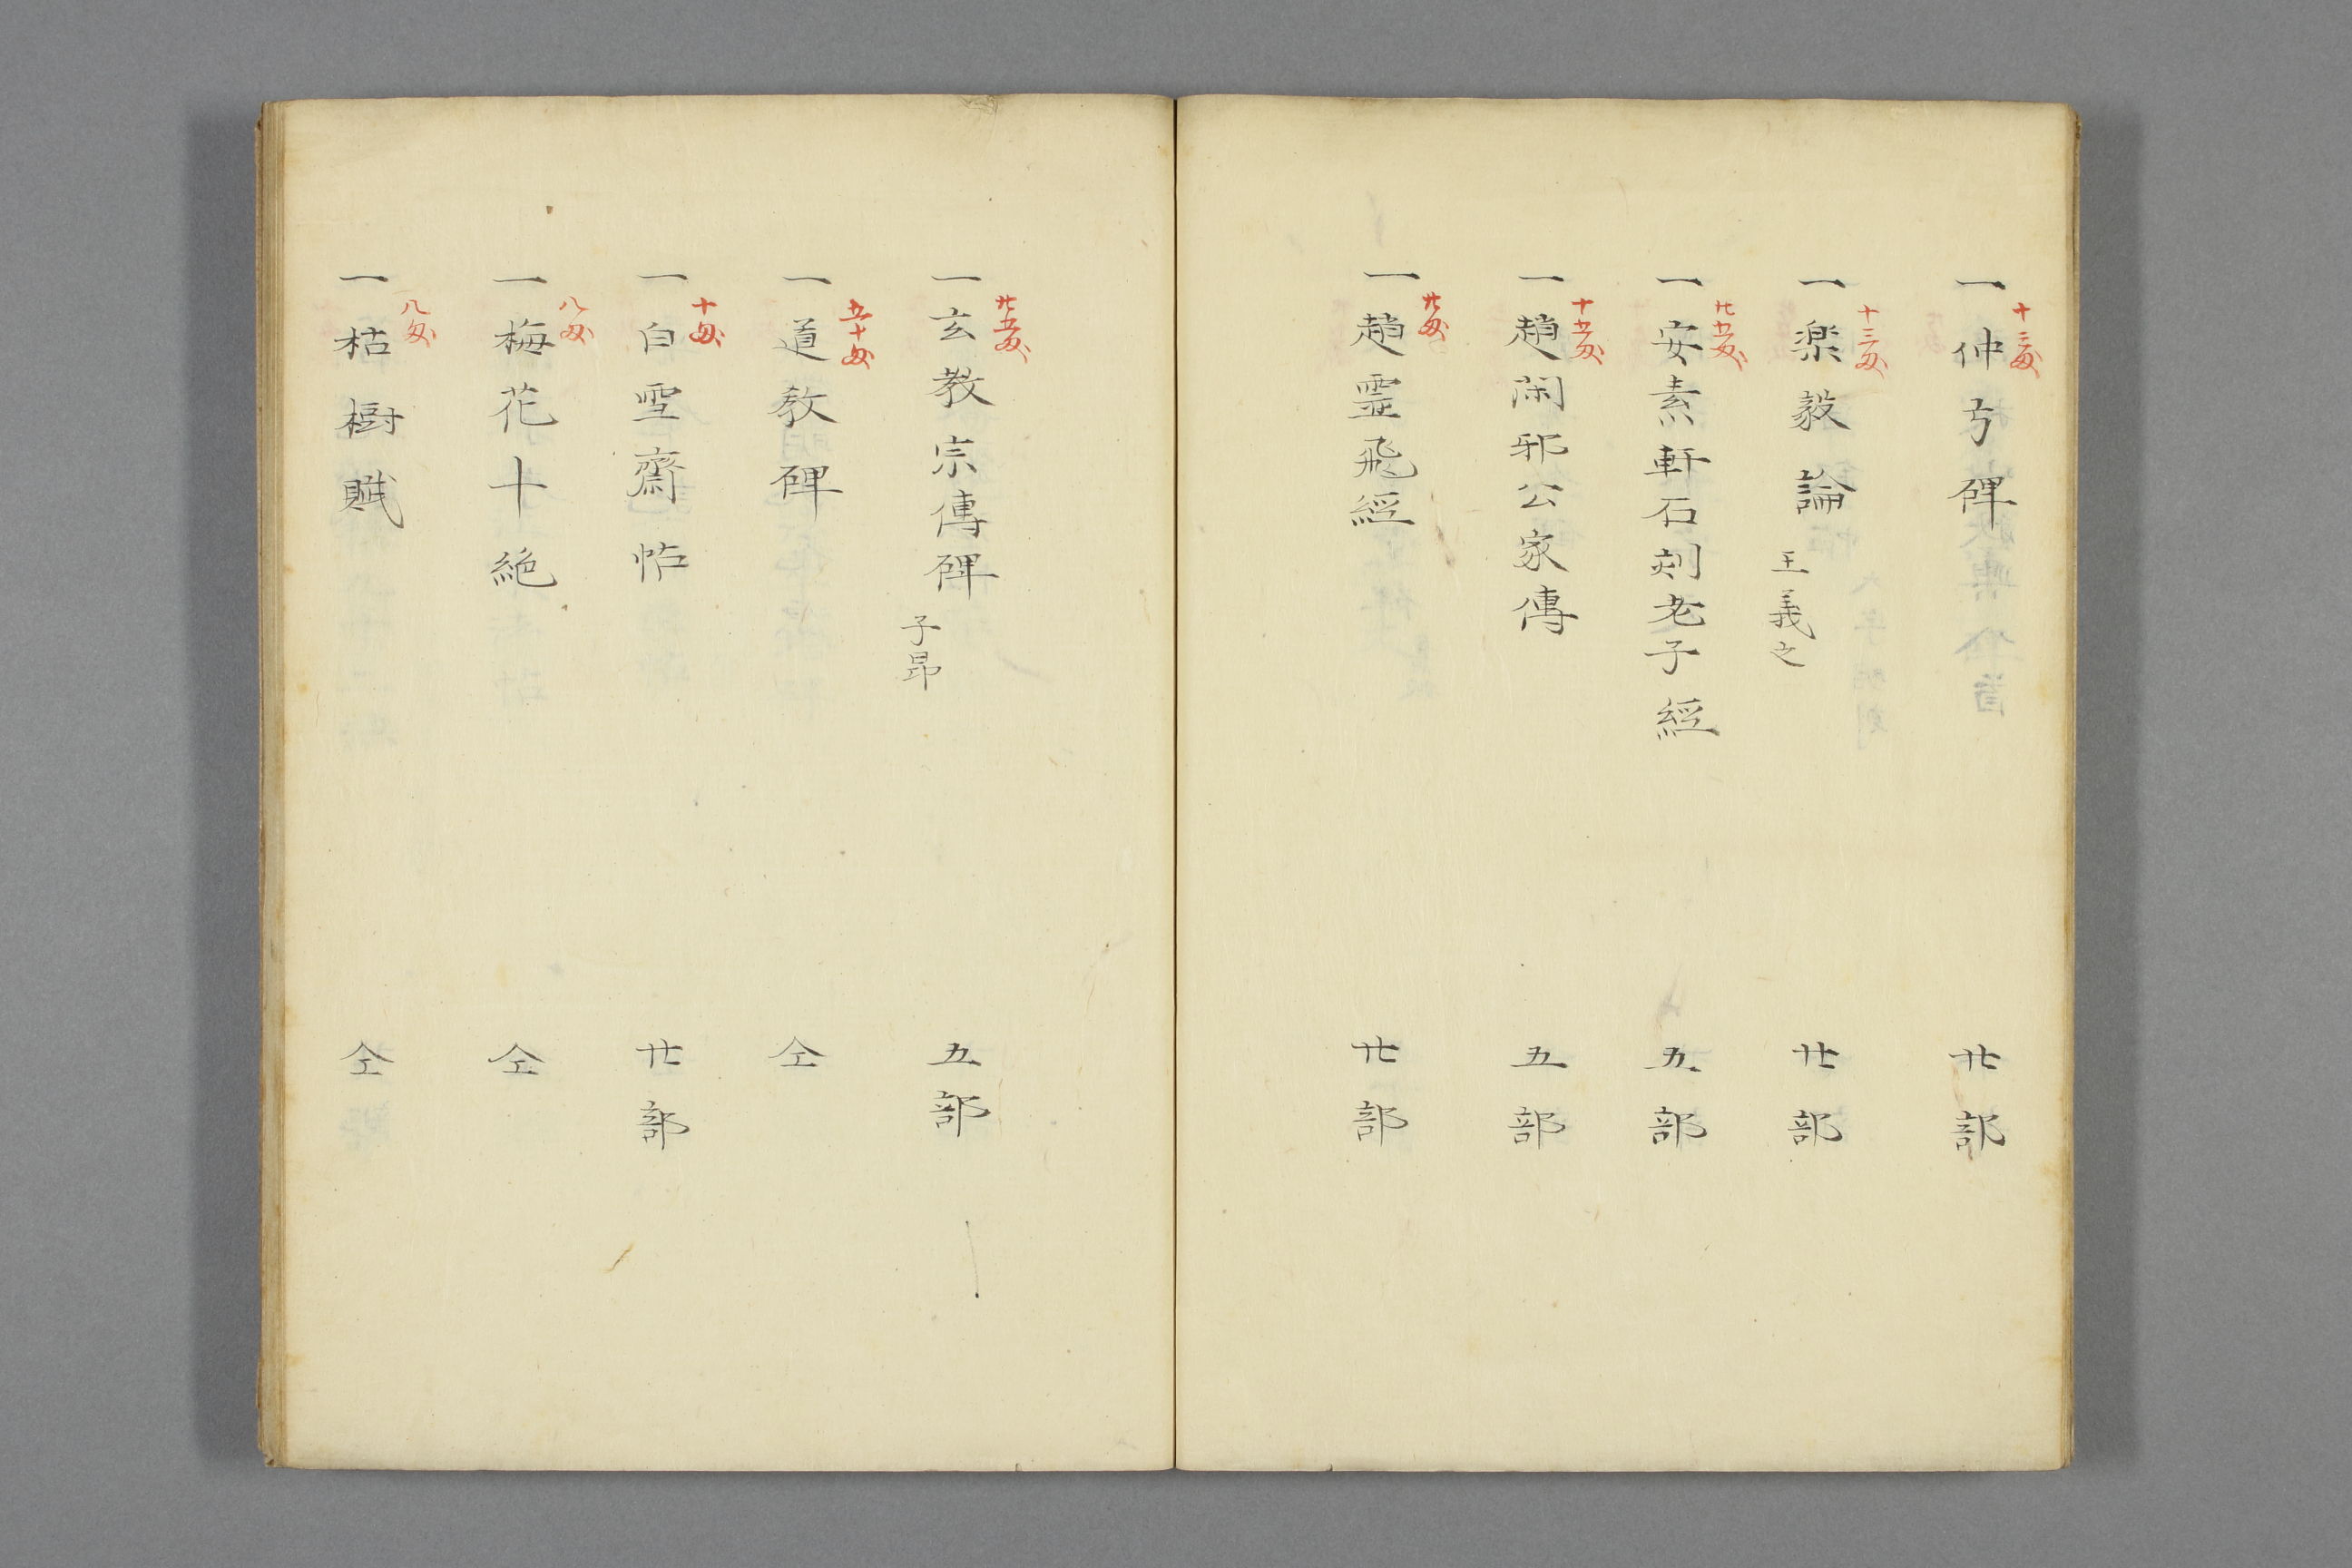 十三匁
一仲弓碑 廿部
十三匁
一楽毅論 王義之 廿部
廿五匁
一安素軒石刻老子經 五部
十五匁
一趙閑邪公家傳 五部
廿匁
一趙霊飛經 廿部
廿五匁
一玄教宗傳碑 子昂 五部
五十匁
一道教碑 仝
十匁
一白雪齋帖 廿部
八匁
一梅花十絶 仝
八匁
一枯樹賦 仝